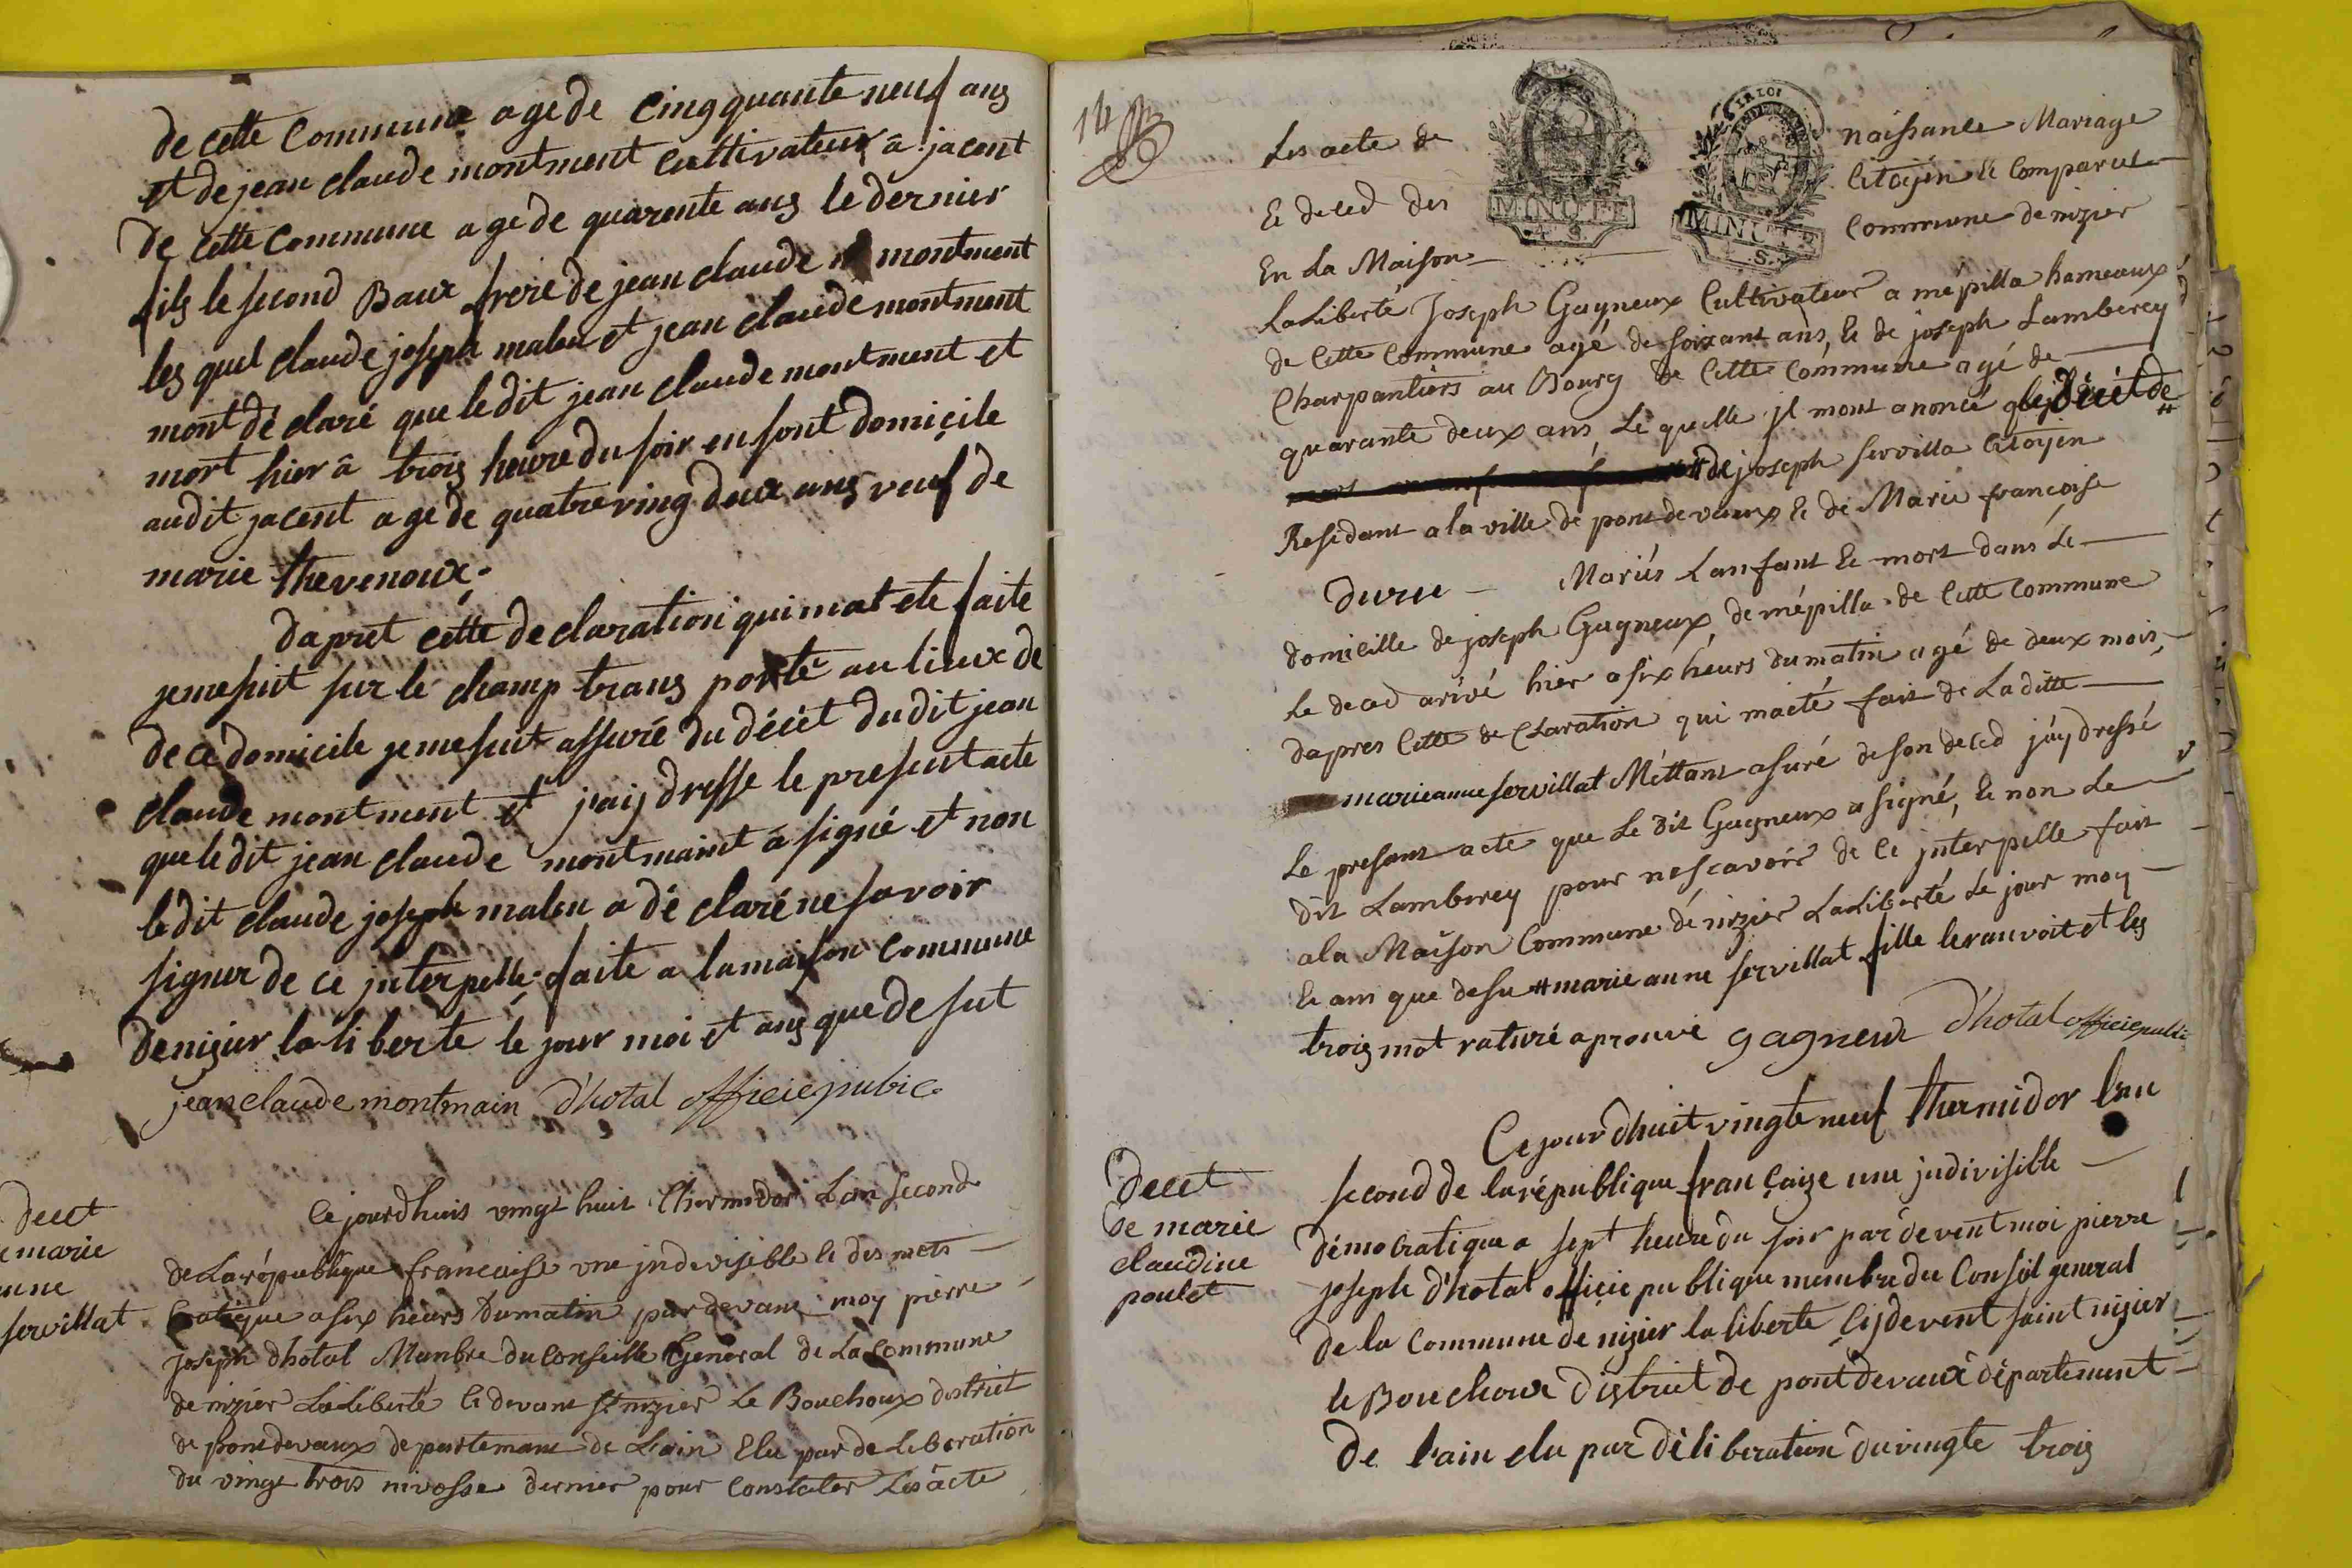 de cette Commune age de cingquante neuf ans
et de jean claude montment cultivateur â jacent
de cette commune age de quarente ans le dernier
fils le second Baux frere de jean claude montment
les quel claude joseph malen et jean claude montment
mont dé claré que le dit jean claude montment et
mort hier â trois heure du soir en sont domicile
audit jacent age de quatre ving deux ans veuf de
marie thevenoux;
dapret cette declaration qui mat ete faite
je me suit sur le champ trans porté au lieux de
de ce domicile je me suit assuré du décét du dit jean
claude montment et j'aij dresse le present acte
que le dit jean claude montmaint â signé et non
le dit claude joseph malen a dé claré ne savoir
signer de ce jnterpellé faite a la maison commune
denizier la liberte le jour moi et ans que de sut
jean claude montmain d'hotal officiepubic
decet
e marie
nne
servillat
Ce jourdhuis vingt huit thermidor Lan second
de La république francaise une jndivisible et des mets
Cratique a six heurs du matin par devant moy pierre
joseph dhotal Manbre du conseille General de La commune
de nizier La Liberté Ci devant St nizier Le Bouchoux district
de pont devaux departemant de L'ain Elu par de Liberation
du vingt trois nivosse dernier pour Constater Les acte
14
Les acte de naissance Mariage
LA LOI
MINUTE
4. S.
MINUTE
S.
Et deced des Citoÿen et Comparut
En La Maison Commune de nizier
La Liberté Joseph Gagneux Cultivateur a mépilla hameaux
de Cette Commune agé de soixant ans, Et de joseph Lamberey
Charpantiers au Bourg de Cette Commune agé de
quarante deux ans Le quelle jl mont anoncé que le décét de #
# de joseph servilla Citoÿen
Residant a la ville de pont de vaux Et de Marie francoise
durue Mariés Lanfant Et mort dans Le
domicille de joseph Gagneux de mépilla de Cette Commune
Le deced arivé hier a six heurs du matin agé de deux mois,
dapres Cette de Claration qui maeté fait de La ditte
marie anne servillat Mettant asuré de son deced j'aÿ dressé
Le presant acte que Le dit Gagneux a signé, Et non Le
dit Lamberey pour nescavoir de Ce jnterpelle fait
a la Maison Commune de nizier La Liberté Le jour moy
Et ans que desu # marie anne servillat fille le ranvoit et les
trois mot raturé aprouvé gagneux d'hotal officiepublic
decet
de marie
claudine
poulet
Ce jour dhuit vingte neuf thermidor Lan
second de la république françaize une jndivisible
démocratique a sept heure du soir par devent moi pierre
joseph d'hotal officie publique membre du Conseil general
de la commune de nizier la liberte Cij devent saint nizier
le Bouchoux district de pont devaux département
de l'ain elu par déliberation du vingte trois